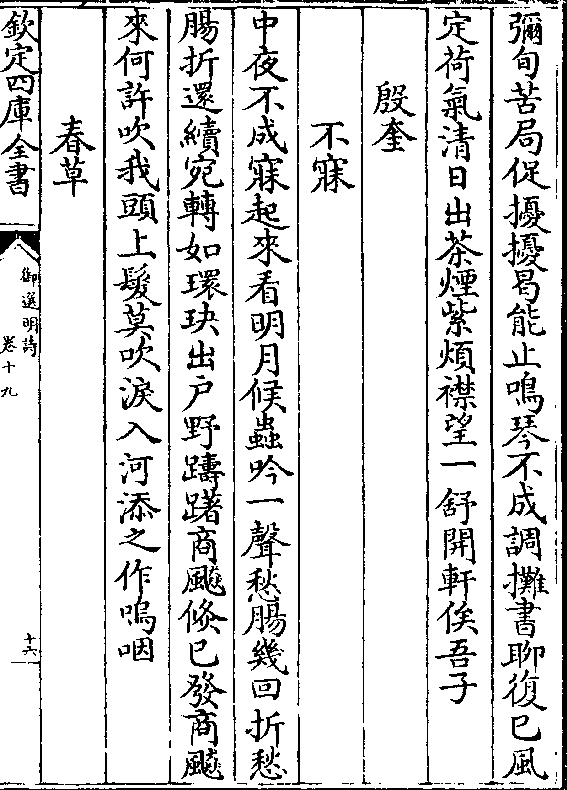 彌旬苦局促擾擾曷能止鳴琴不成調攤書聊復已風
定荷氣清日出茶煙紫煩襟望一舒開軒俟吾子
殷奎
不寐
中夜不成寐起來看明月候蟲吟一聲愁腸幾回折愁
腸折還續宛轉如環玦出戶野躊躇商飈倐已發商飈
來何許吹我頭上髮莫吹淚入河添之作嗚咽
春草
欽定四庫全書
御選明詩
卷十九
十六